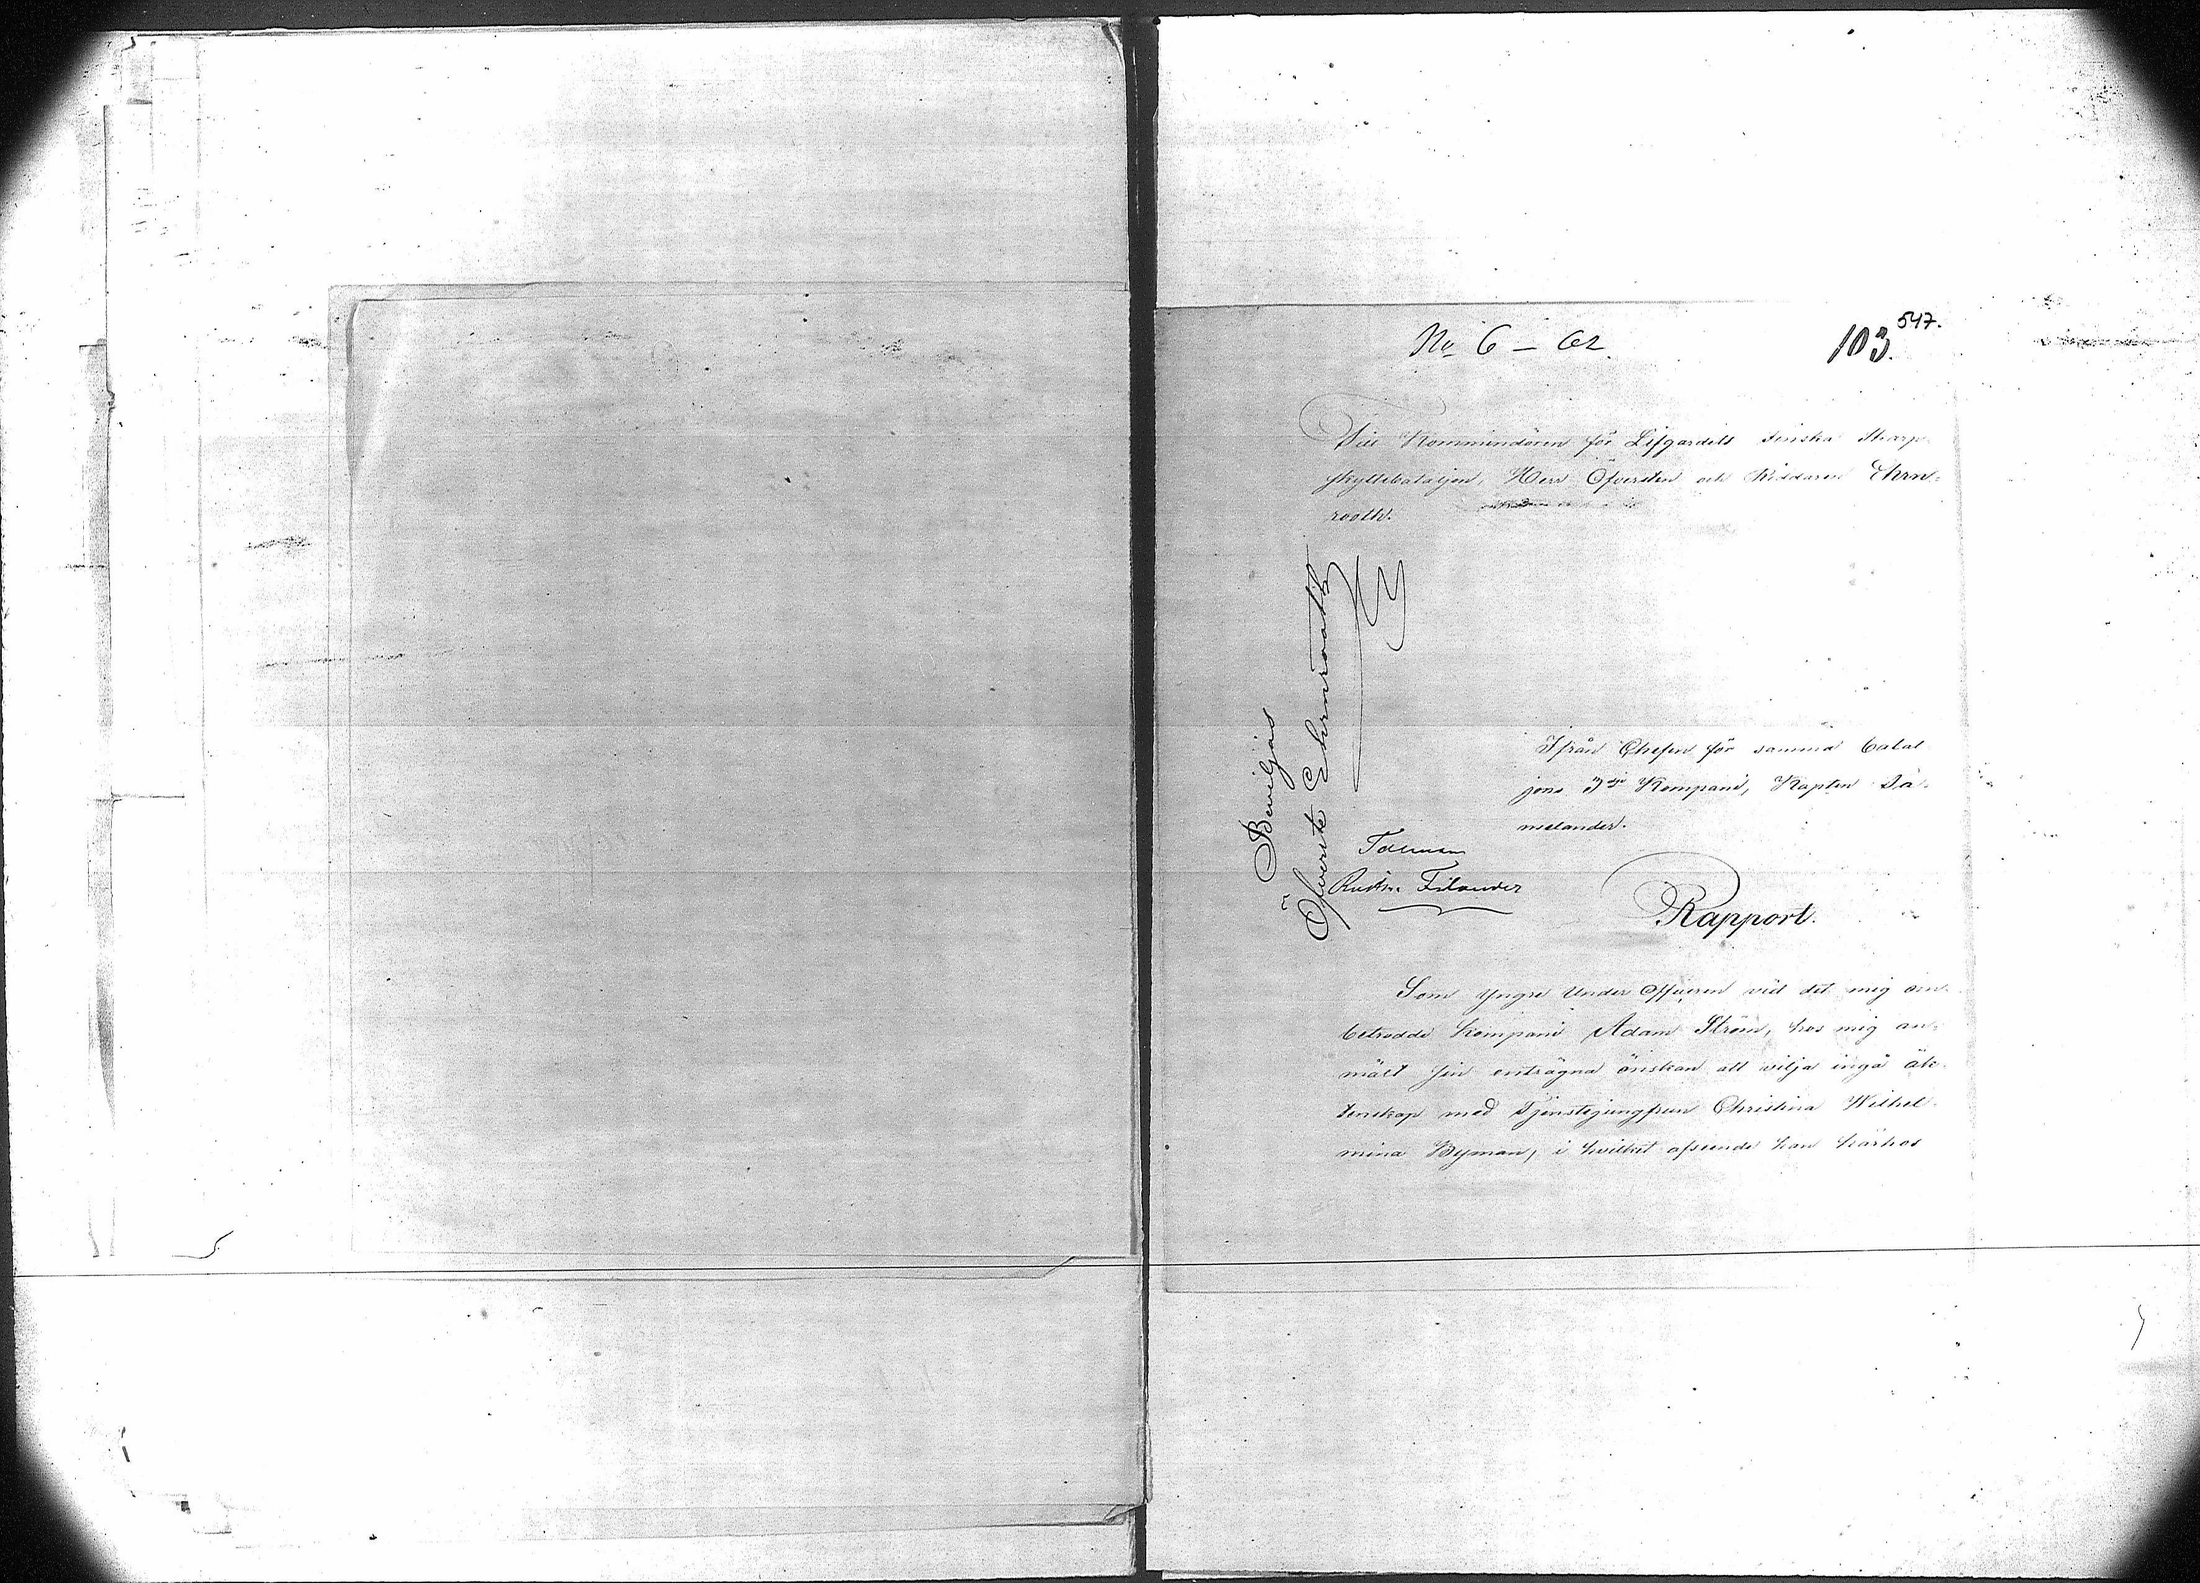 No 6 – 62.
103.
547.
Till Kommendören för Lifgardets Finska Skarp-
skyttebataljon, Herr Öfversten och Riddaren Ehrn-
rooth.
Beviljas
Öfverste Ehrnrooth
Ifrån Chefen för samma batal
jons 3dje Kompani, Kapten
melander.
Rapport.
Som yngre Under Officeren vid det mig an-
betrodde kompani Adam Ström, hos mig an-
mält sin enträgna önskan att vilja ingå äk-
tenskap med Tjenstejungfrun Christina Wilhel-
mina Byman, i hvilket afseende han härhos